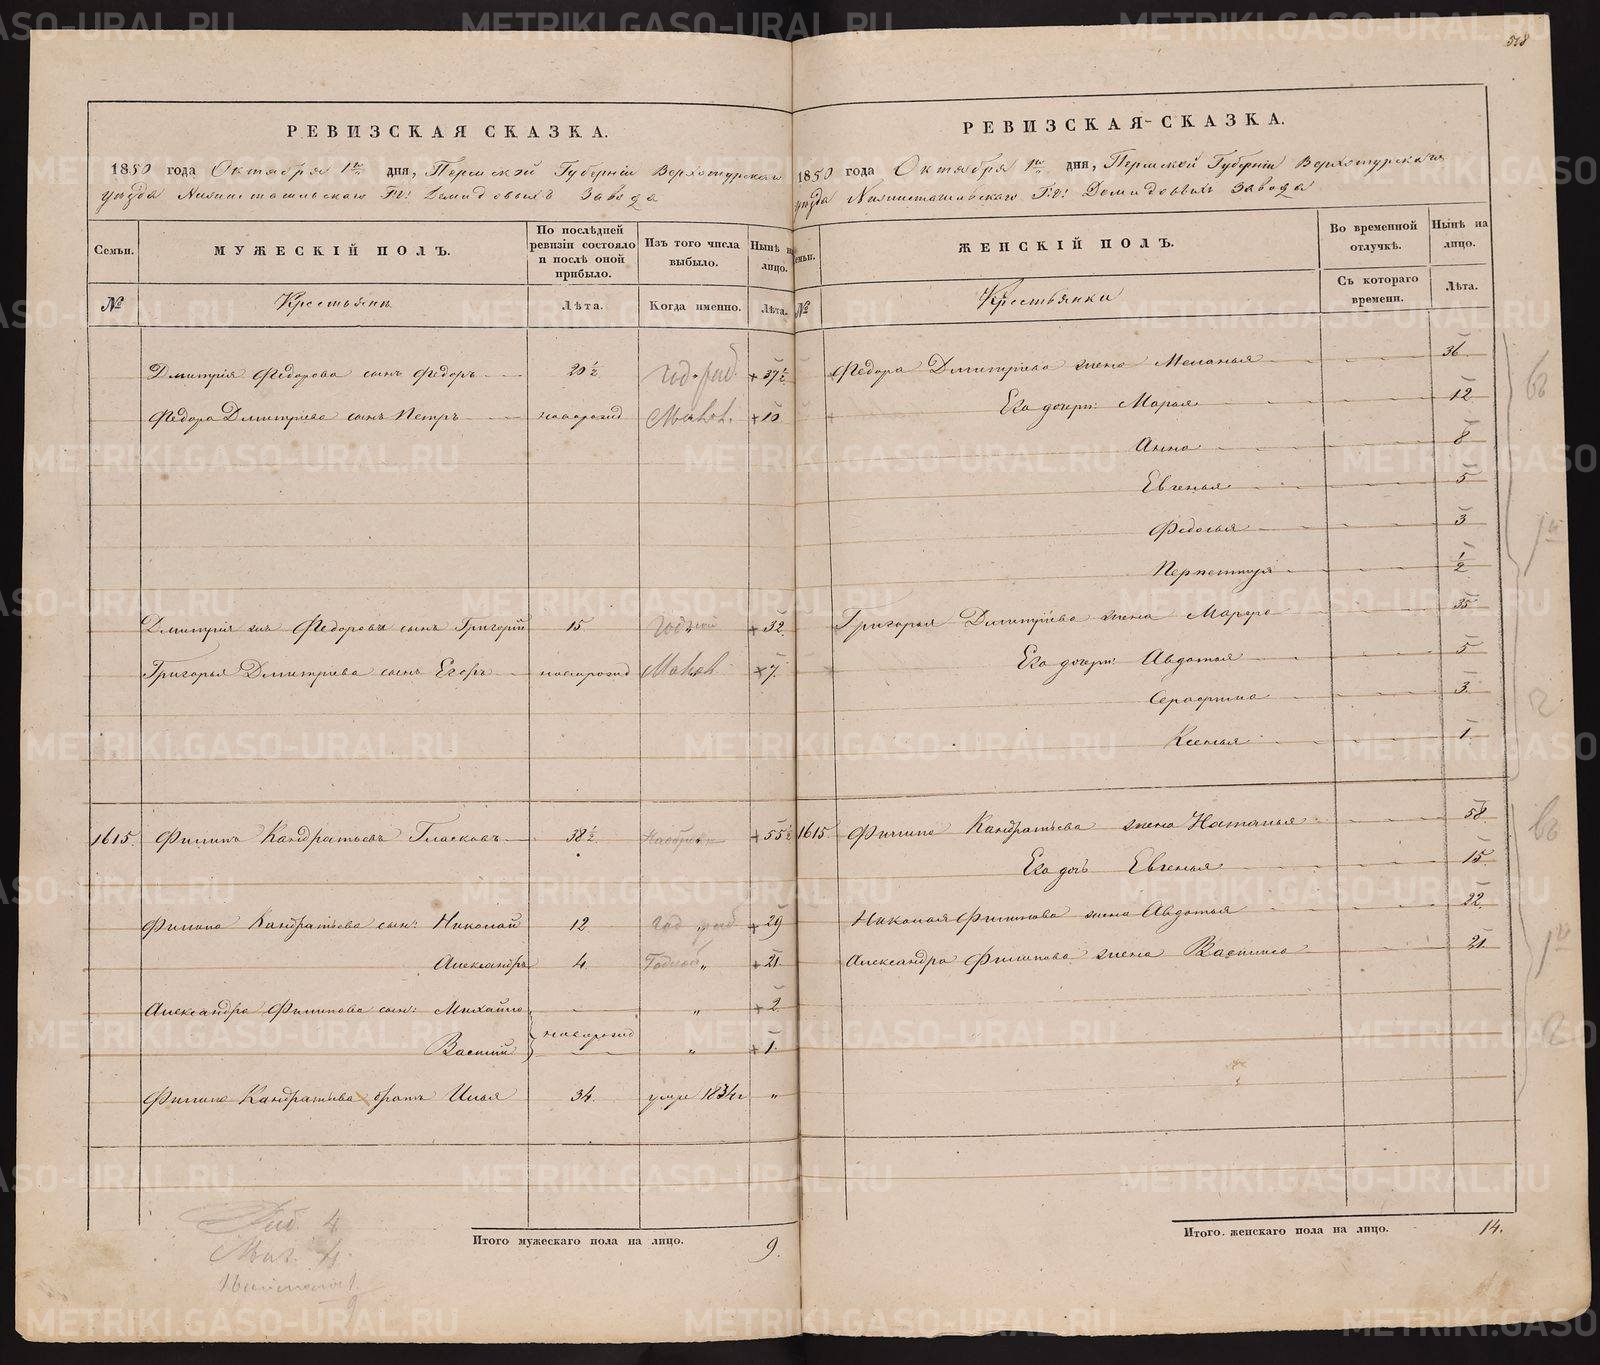 РЕВИЗСКАЯ СКАЗКА.
1850 года Октября 1го дня, Пермской Губерніи Верхотурскаго
уѣзда Нижнетагильскаго Гг: Демидовыхъ Завода
Семьи. МУЖЕСКІЙ ПОЛЪ. По послѣдней ревизіи состояло и послѣ оной прибыло. Изъ того числа выбыло. Нынѣ на лицо.
№ Крестьяне Лѣта. Когда именно. Лѣта.
Дмитрія Федорова сынъ Федоръ 20½ + 37½
Федора Дмитріева сынъ Петръ новорожд + 10
Дмитрія Федорова сынъ Григорій 15 + 32
Григорья Дмитріева сынъ Егоръ новорожд + 7
1615. Филипъ Кандратьевъ Гласковъ 38½ + 55½
Филипа Кандратьева сын: Николай 12 год „ + 29
Александръ 4. „ + 21.
Александра Филипова сын: Михайло „ + 2
новорожд
Василій „ + 1.
Филипа Кандратьева братъ Илья 34. умре 1834г „
Итого мужескаго пола на лицо. 9.
318
РЕВИЗСКАЯ-СКАЗКА.
1850 года Октября 1го дня, Пермской Губерніи Верхотурскаго
уѣзда Нижнетагильскаго Гг: Демидовыхъ Завода
Семьи. ЖЕНСКІЙ ПОЛЪ. Во временной отлучкѣ. Нынѣ на лицо.
№ Крестьянки Съ котораго времени. Лѣта.
Федора Дмитріева жена Меланья 36
Его дочери: Марья 12
Анна 8
Евгенья 5
Федосья 3
Перпетуя ½
Григорья Дмитріева жена Марфа 35
Его дочери: Авдотья 5
Серафима 3.
Ксенья 1
1615 Филипа Кандратьева жена Наталья 58
Его дочь Евгенья 15
Николая Филипова жена Авдотья 22.
Александра Филипова жена Василиса 21
Итого женскаго пола на лицо. 14.
METRIKI.GASO-URAL.RU